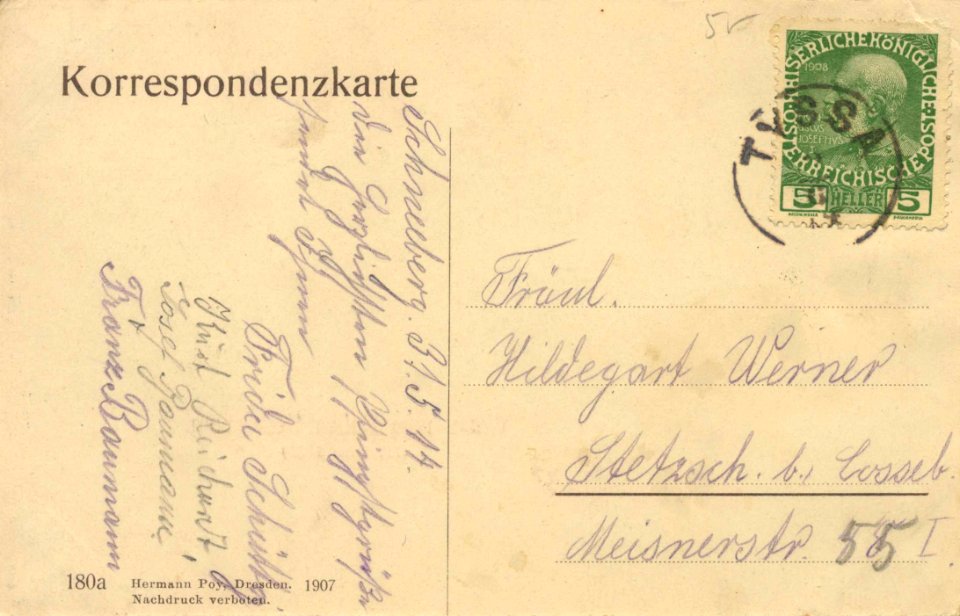 5
Korrespondenzkarte
KAISERLICHE KÖNIGLICHE
ÖSTERREICHISCHE POST
1908
5 HELLER 5
TYSSA
Schneeberg. 31.5.14.
Die herzlichsten Pfingstgrüße
sendet Ihnen
Frida
Kurt Reichardt
Josef Baumann
Franz Baumann
Fräul.
Hildegart Werner
Stetzsch. b. Cosseb.
Meisnerstr. 55 I
180a Hermann Poy, Dresden. 1907
Nachdruck verboten.